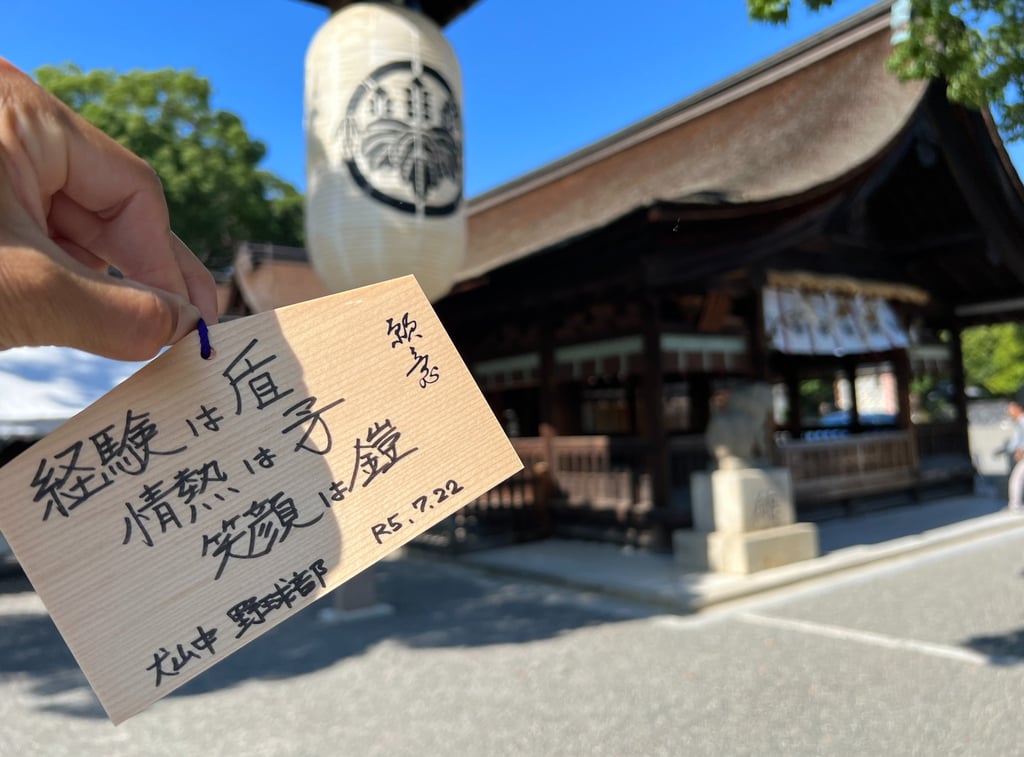 願意
経験は盾
情熱は矛
笑顔は鎧
R5.7.22
犬山中 野球部